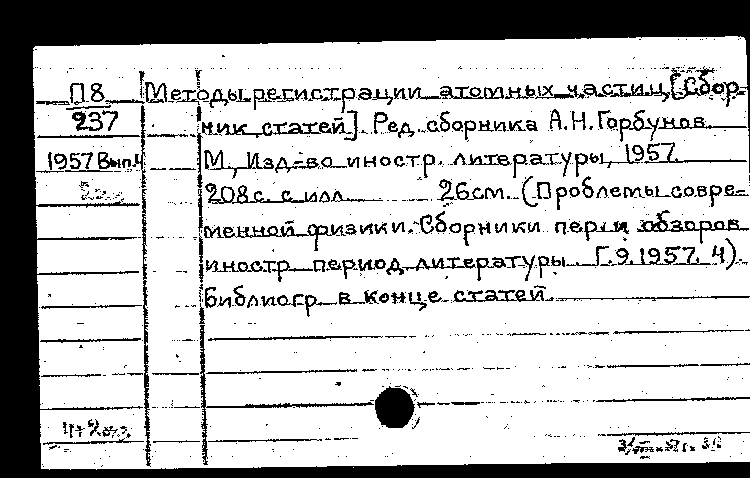 П8 Методы регистрации атомных частиц, [Сбор-
237 ник статей]. Ред. сборника А.Н.Горбунов.
1957 Вып.4 М., Изд-во иностр. литературы, 1957.
208 с. с илл. 26см. (Проблемы совре-
менной физики. Сборники пер. и обзоров
иностр. период. литературы. Г.9.1957. 4).
Библиогр. в конце статей.